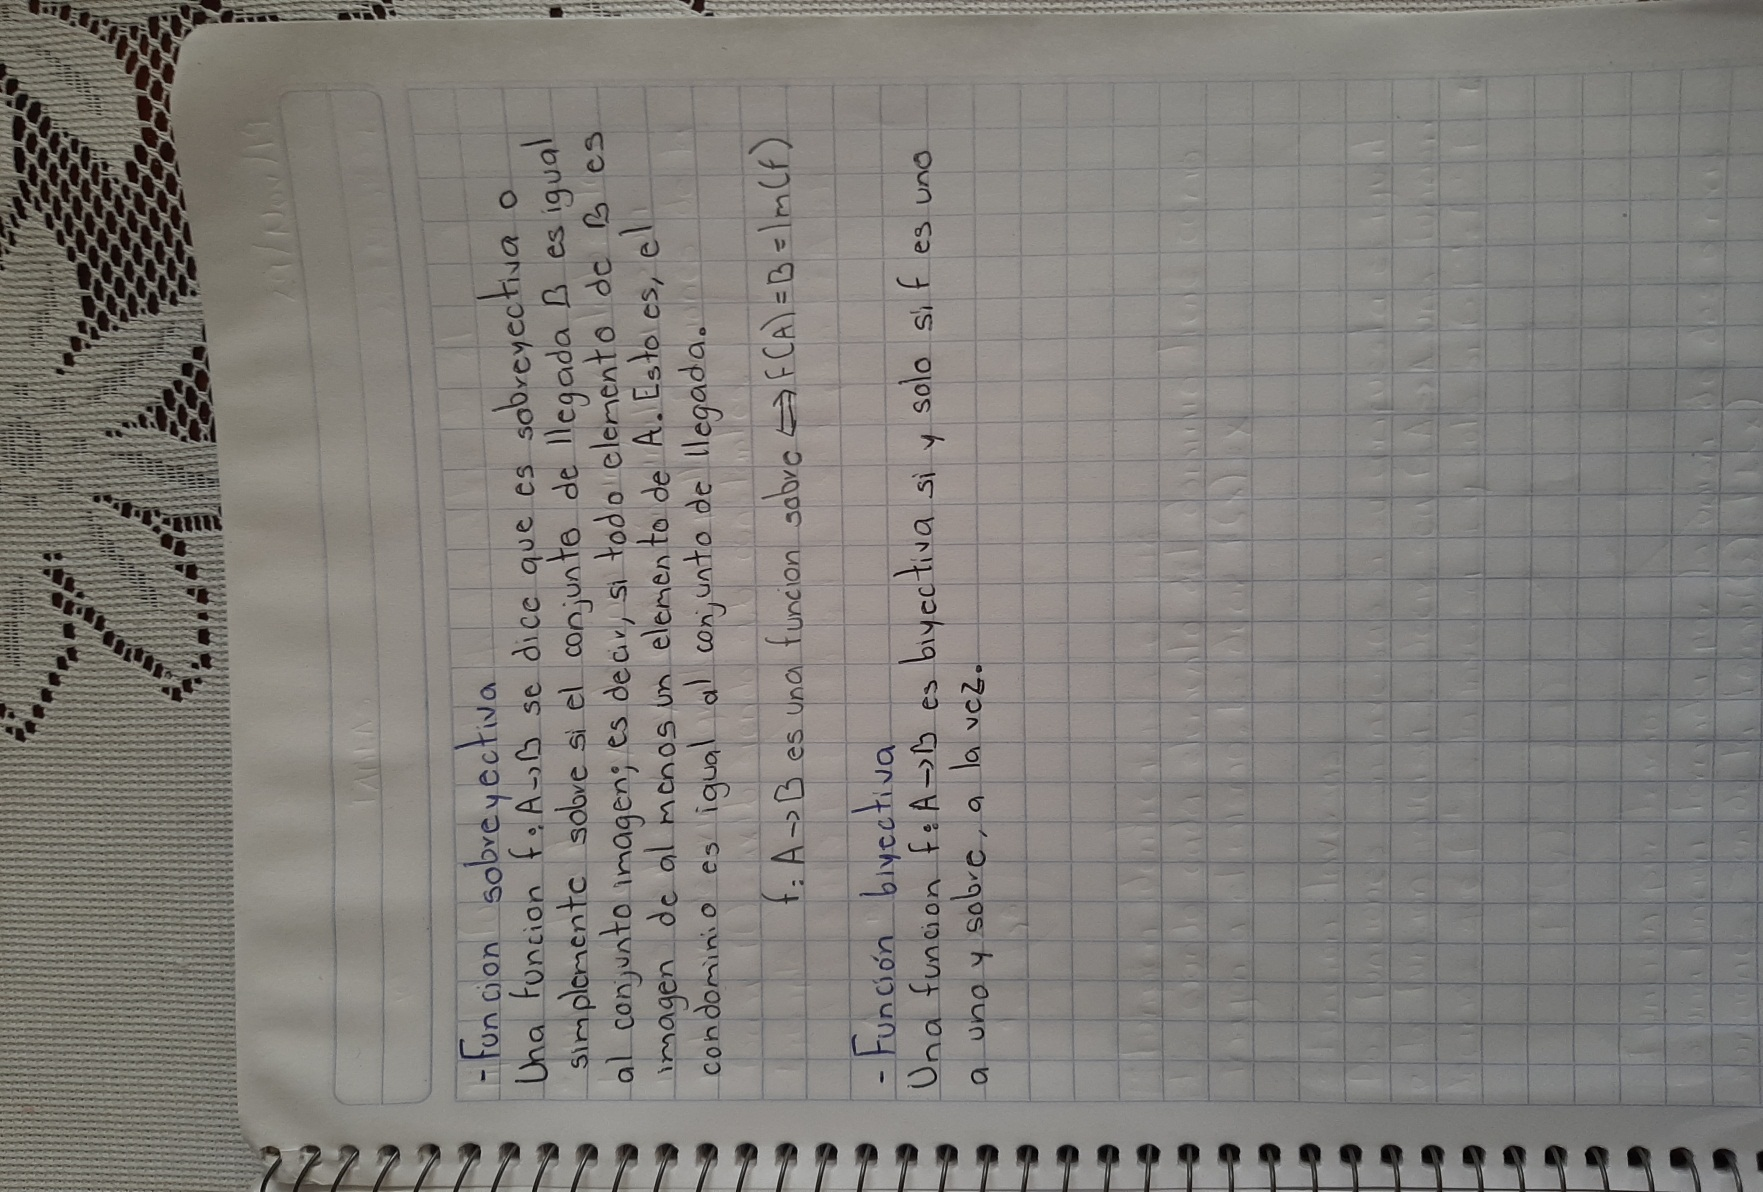 - Funcion sobreyectiva
Una funcion f: A→B se dice que es sobreyectiva o
simplemente sobre si el conjunto de llegada B es igual
al conjunto imagen; es decir, si todo elemento de B es
imagen de al menos un elemento de A. Esto es, el
condominio es igual al conjunto de llegada.
f: A→B es una funcion sobre ⇔ f(A)=B=Im(f)
- Función biyectiva
Una funcion f: A→B es biyectiva si y solo si f es uno
a uno y sobre, a la vez.